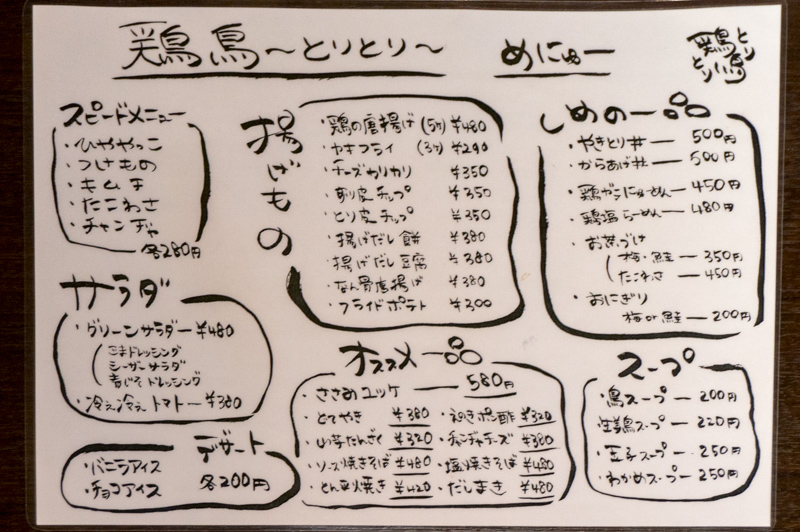 鶏鳥～とりとり～
めにゅー
鶏鳥
とりとり
スピードメニュー
・ひややっこ
・つけもの
・キムチ
・たこわさ
・チャンヂャ
各280円
サラダ
・グリーンサラダー ¥480
ごまドレッシング
シーザーサラダ
青じそドレッシング
・冷え冷えトマトー ¥380
デザート
・バニラアイス
・チョコアイス
各200円
揚げもの
・鶏の唐揚げ (5ヶ) ¥480
・カキフライ (3ヶ) ¥290
・チーズカリカリ ¥350
皮チップ ¥350
・とり皮チップ ¥350
・揚げだし餅 ¥380
・揚げだし豆腐 ¥380
・なん骨唐揚げ ¥380
・フライドポテト ¥300
オススメ一品
・ささみユッケ ― 580円
・とてやき ¥380
・山芋たんざく ¥320
・ソース焼きそば ¥480
・とん平焼き ¥420
・えのきポン酢 ¥320
・チャンヂャチーズ ¥380
・塩焼きそば ¥480
・だしまき ¥480
しめの一品
・やきとり丼 ― 500円
・からあげ丼 ― 500円
・鶏ガラにゅーめん ― 450円
・鶏塩らーめん ― 480円
・お茶づけ
梅・鮭 ― 350円
たこわさ ― 450円
・おにぎり
梅or鮭 ― 200円
スープ
・鳥スープ ― 200円
スープ ― 220円
・玉子スープ ― 250円
・わかめスープ ― 250円